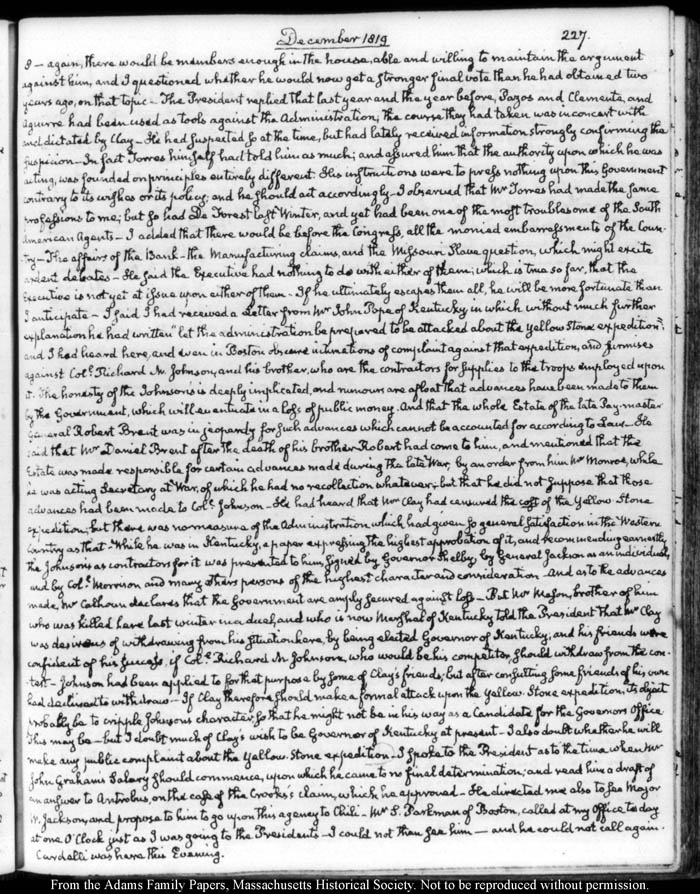 December 1819
227.
8 — again, there would be members enough in the house, able and willing to maintain the argument
against him, and I questioned whether he would now get a stronger final vote than he had obtained two
years ago, on that topic — The President replied that last year and the year before, Pazos and Clemente, and
Aguirre had been used as tools against the Administration, the course they had taken was in concert with
and dictated by Clay — He had suspected so at the time, but had lately received information strongly confirming the
suspicion — In fact Torres himself had told him as much; and assured him that the authority upon which he was
acting, was founded on principles entirely different. His instructions were to press nothing upon this Government
contrary to its wishes or its policy; and he should act accordingly — I observed that Mr Torres had made the same
professions to me; but so had De Forest last Winter, and yet had been one of the most troublesome of the South
American Agents — I added that there would be before the Congress, all the monied embarrassments of the Coun-
try — The affairs of the Bank — the Manufacturing claims, and the Missouri Slave question, which might excite
ardent debates — He said the Executive had nothing to do with either of them; which is true so far, that the
Executive is not yet at issue upon either of them — If he ultimately escapes them all, he will be more fortunate than
I anticipate — I said I had received a Letter from Mr John Pope of Kentucky in which without much further
explanation he had written "let the administration be prepared to be attacked about the Yellow Stone expedition";
and I had heard here, and even in Boston obscure intimations of complaint against that expedition, and surmises
against Col: Richard M. Johnson, and his brother, who are the contractors for supplies to the troops employed upon
it. The honesty of the Johnsons is deeply implicated, and rumours are afloat that advances have been made to them
by the Government, which will eventuate in a loss of public money. And that the whole Estate of the late Pay-master
General Robert Brent was in jeopardy for such advances which cannot be accounted for according to Law — He
said that Mr Daniel Brent after the death of his brother Robert had come to him, and mentioned that the
Estate was made responsible for certain advances made during the late War, by an order from him Mr Monroe, while
he was acting Secretary at War, of which he had no recollection whatever; but that he did not suppose that those
advances had been made to Col: Johnson — He had heard that Mr Clay had censured the cost of the Yellow Stone
expedition; but there was no measure of the Administration which had given so general satisfaction in the Western
Country as that — While he was in Kentucky, a paper expressing the highest approbation of it, and recommending earnestly
the Johnsons as contractors for it was presented to him, signed by Governor Shelby, by General Jackson as an individual,
and by Col: Morrison and many others persons of the highest character and consideration — And as to the advances
made, Mr Calhoun declares that the Government are amply secured against loss — But Mr Mason, brother of him
who was killed here last winter in a duel, and who is now Marshal of Kentucky told the President that Mr Clay
was desirous of withdrawing from his situation here, by being elected Governor of Kentucky, and his friends were
confident of his success, if Col: Richard M. Johnson, who would be his competitor, should withdraw from the con-
test — Johnson had been applied to for that purpose by some of Clay's friends; but after consulting some friends of his own
had declined to withdraw — If Clay therefore should make a formal attack upon the Yellow Stone expedition, its object
probably be to cripple Johnson's character, so that he might not be in his way as a Candidate for the Governors Office
This may be — but I doubt much of Clay's wish to be Governor of Kentucky at present — I also doubt whether he will
make any public complaint about the Yellow Stone expedition — I spoke to the President as to the time when Mr
John Graham's Salary should commence, upon which he came to no final determination; and read him a draft of
an answer to Antrobus, on the case of the Crooks's claim, which he approved — He directed me also to see Major
W. Jackson, and propose to him to go upon this agency to Chili — Mr S. Parkman of Boston, called at my office, to day
at one O'Clock just as I was going to the Presidents — I could not then see him — and he could not call again.
Cardelli was here this Evening.
From the Adams Family Papers, Massachusetts Historical Society. Not to be reproduced without permission.